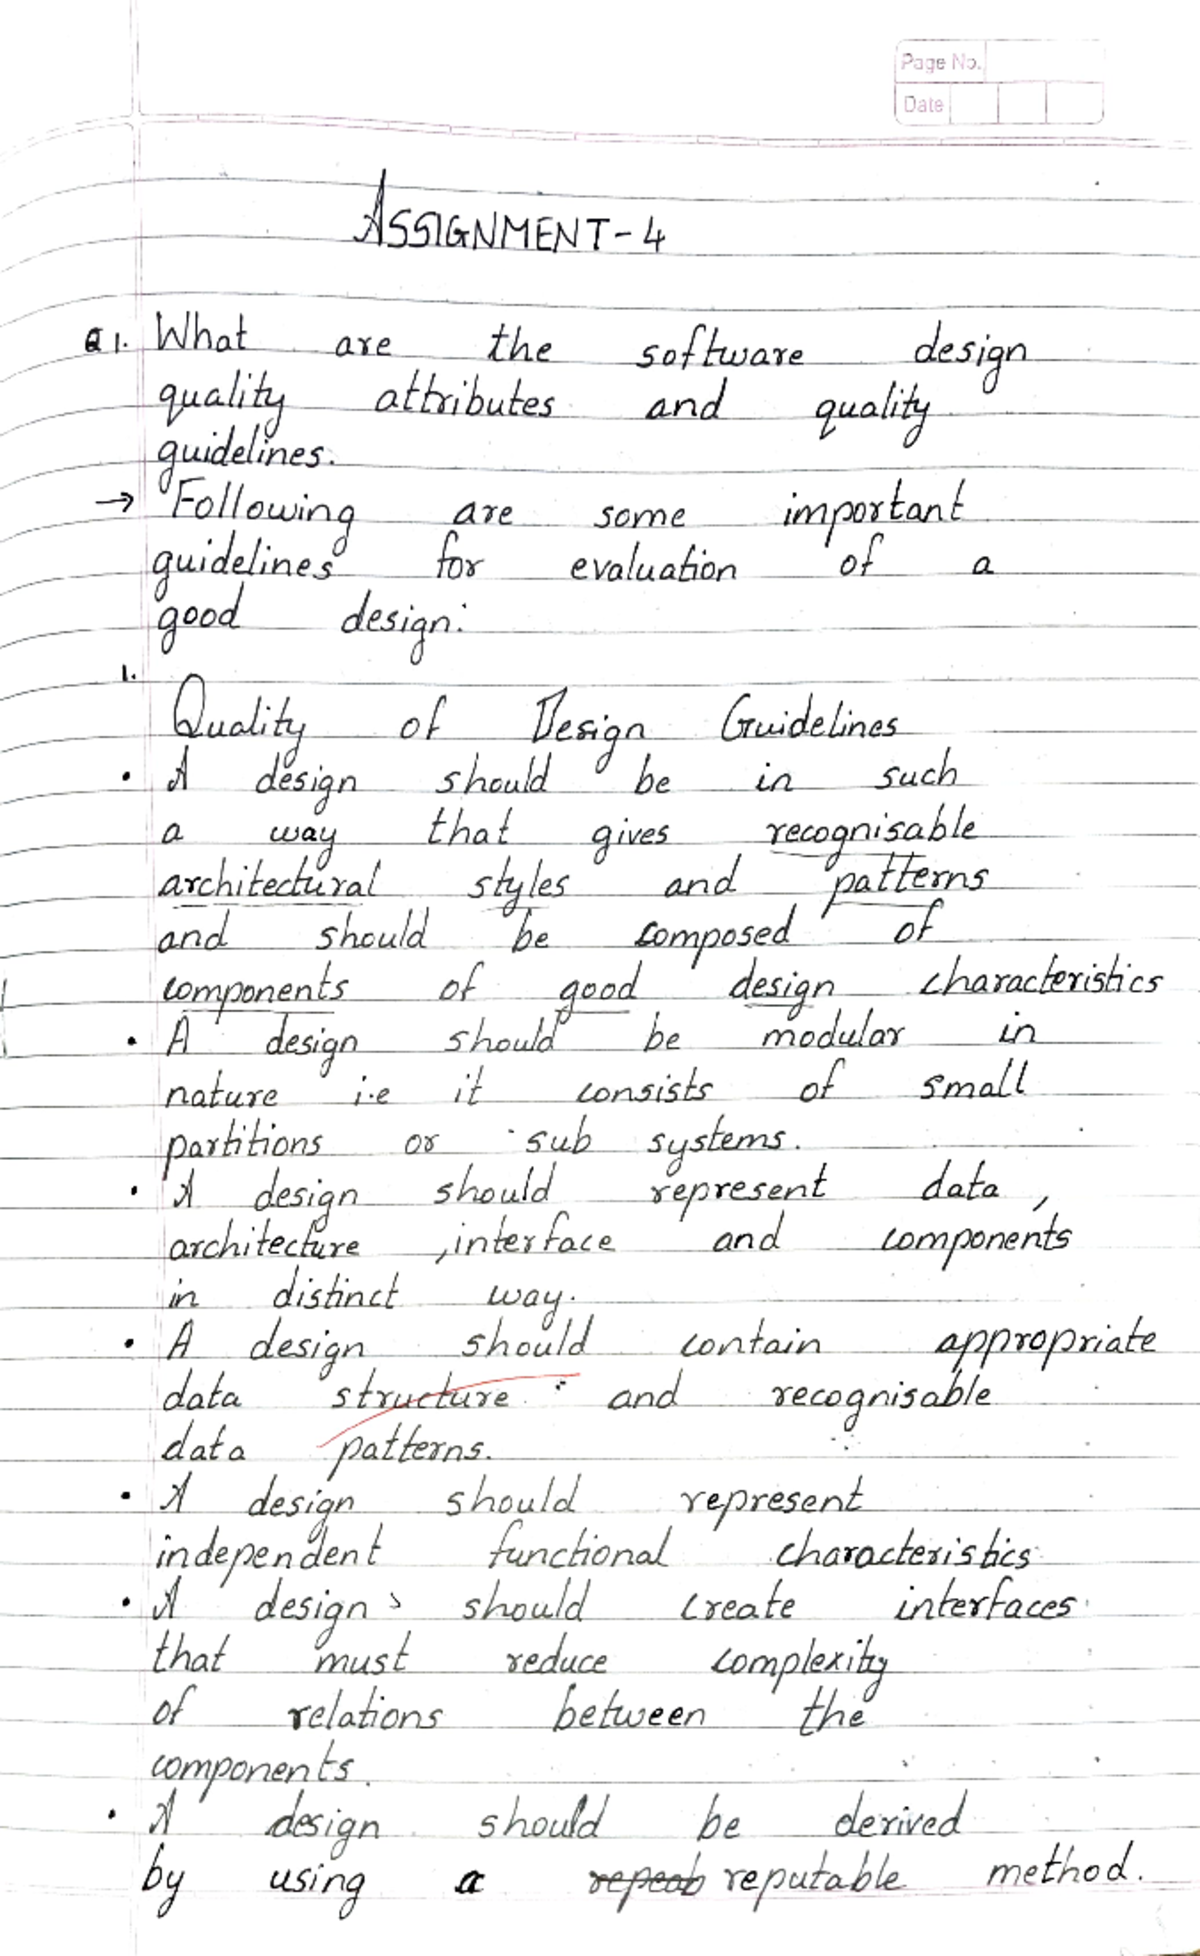 Page No.
Date
ASSIGNMENT-4
Q1. What are the software design
quality attributes and quality
guidelines.
→ Following are some important
guidelines for evaluation of a
good design:
1.
Quality of Design Guidelines
• A design should be in such
a way that gives recognisable
architectural styles and patterns
and should be composed of
components of good design characteristics
• A design should be modular in
nature i.e it consists of small
partitions or sub systems.
• A design should represent data,
architecture ,interface and components
in distinct way.
• A design should contain appropriate
data structure and recognisable
data patterns.
• A design should represent
independent functional characteristics
• A design should create interfaces
that must reduce complexity
of relations between the
components.
• A design should be derived
by using a reputable method.